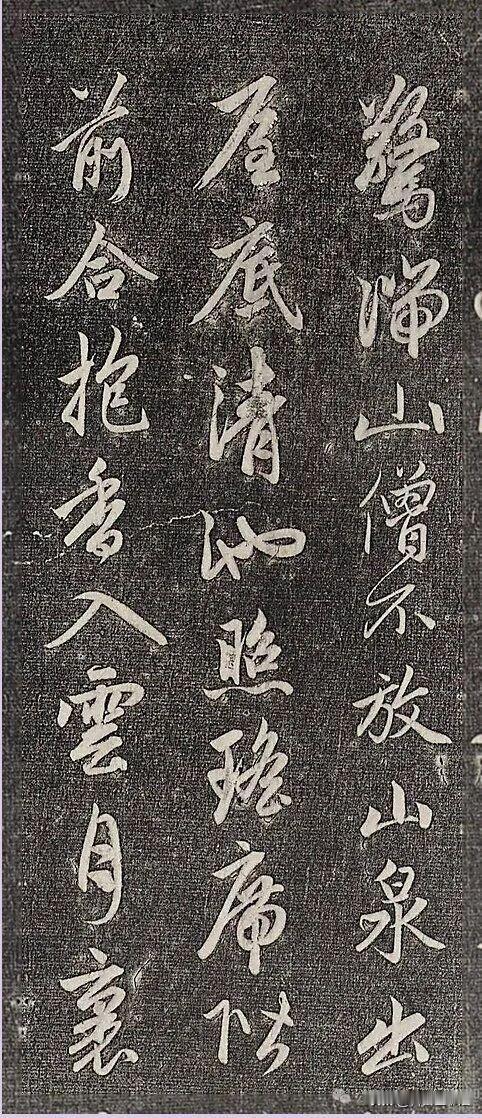 驚湍山僧不放山泉出
屋底清池照瑤席階
前合抱香入雲月裏